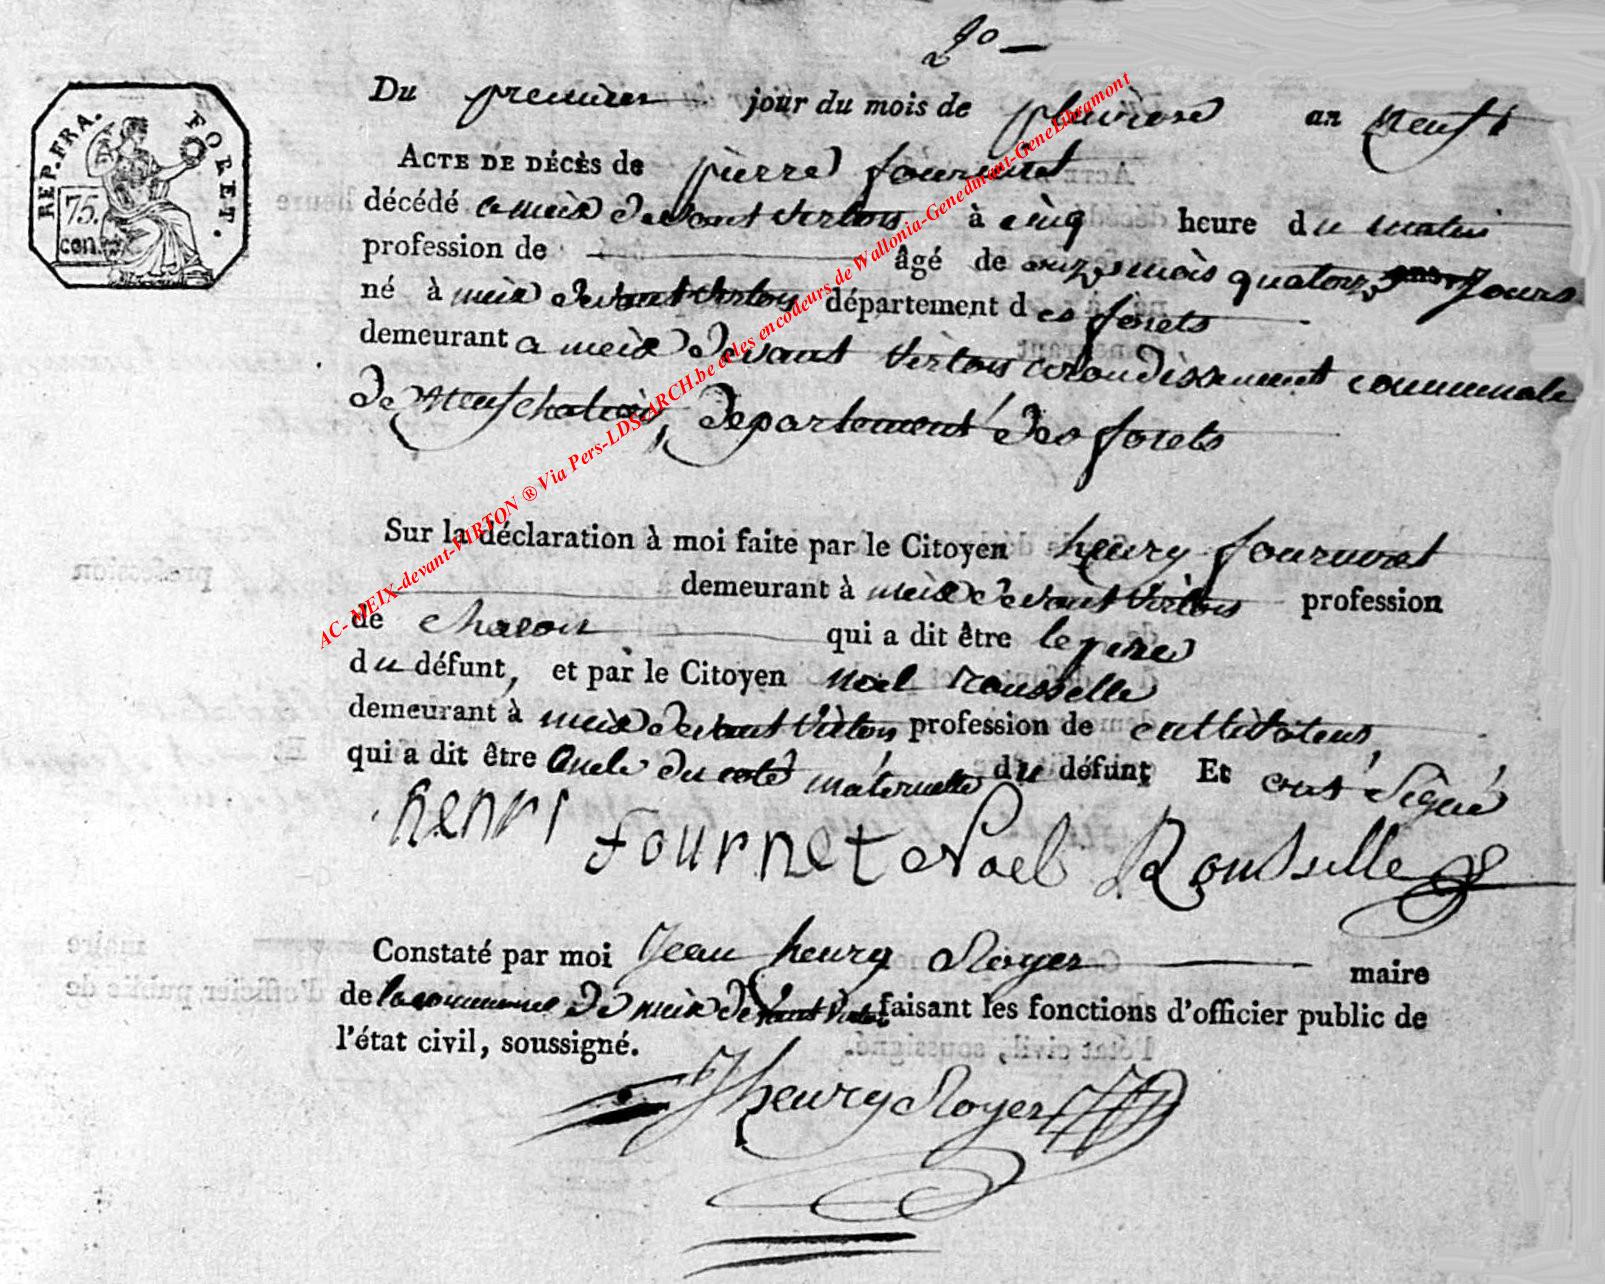 20 —
REP. FRA. FORET.
75.
cen.
Du premier jour du mois de pluviose an neuf
ACTE DE DÉCÈS de pierre fournet
décédé a meix devant virton à cinq heure du matin
profession de âgé de onze mois quatorze jours
né à meix devant virton département des forets
demeurant a meix devant virton arondissement communale
de Neufchateau, departement des forets
Sur la déclaration à moi faite par le Citoyen henry fournet
demeurant à meix devant virton profession
de charon qui a dit être le pere
du défunt, et par le Citoyen noel rousselle
demeurant à meix devant virton profession de cultivateur
qui a dit être oncle du coté maternelle du défunt Et ont signé
henri fournet Noel Rousselle
Constaté par moi Jean henry Royer maire
de la commune de meix devant virton faisant les fonctions d'officier public de
l'état civil, soussigné.
J henry Royer
AC- MEIX-devant-VIRTON ® Via Pers-LDS-ARCH.be et les encodeurs de Wallonia-Genedinant-GeneLibramont